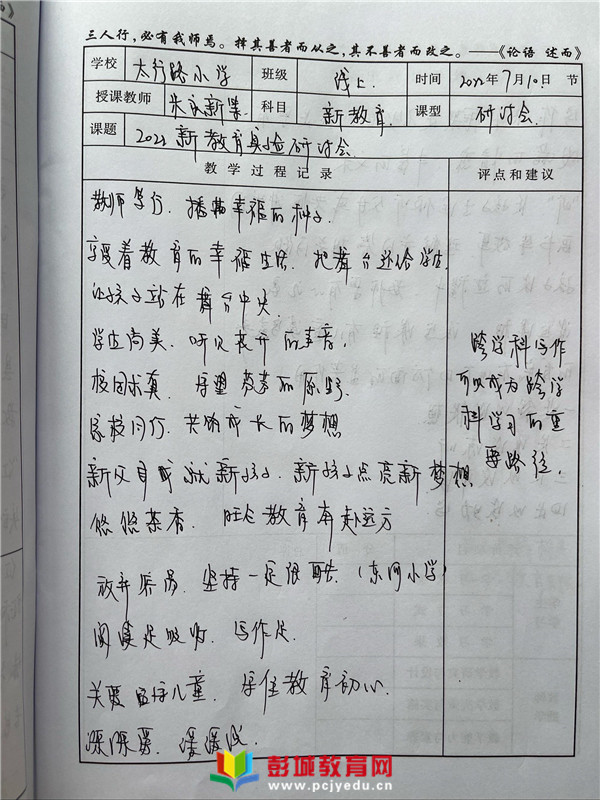 三人行,必有我师焉。择其善者而从之,其不善者而改之。——《论语 述而》
学校 太行路小学 班级 线上 时间 2022年7月10日 节
授课教师 朱永新等 科目 新教育 课型 研讨会
课题 2022新教育实验研讨会
教学过程记录 评点和建议
教师笃行.播种幸福的种子.
享受着教育的幸福生活.把舞台还给学生
让孩子站在舞台中央.
学生尚美.听见花开的声音.
校园求真.
家校同行.共响成长的梦想
新父母成就新孩子.新孩子点亮新梦想
悠悠茶香. 教育奔赴远方
放弃容易.坚持一定很酷.(东河小学)
阅读是吸收.写作是.
关爱留守儿童.守住教育初心.
深深爱.
跨学科写作
可以成为跨学
科学习的重
要路径.
彭城教育网
www.pcjyedu.cn